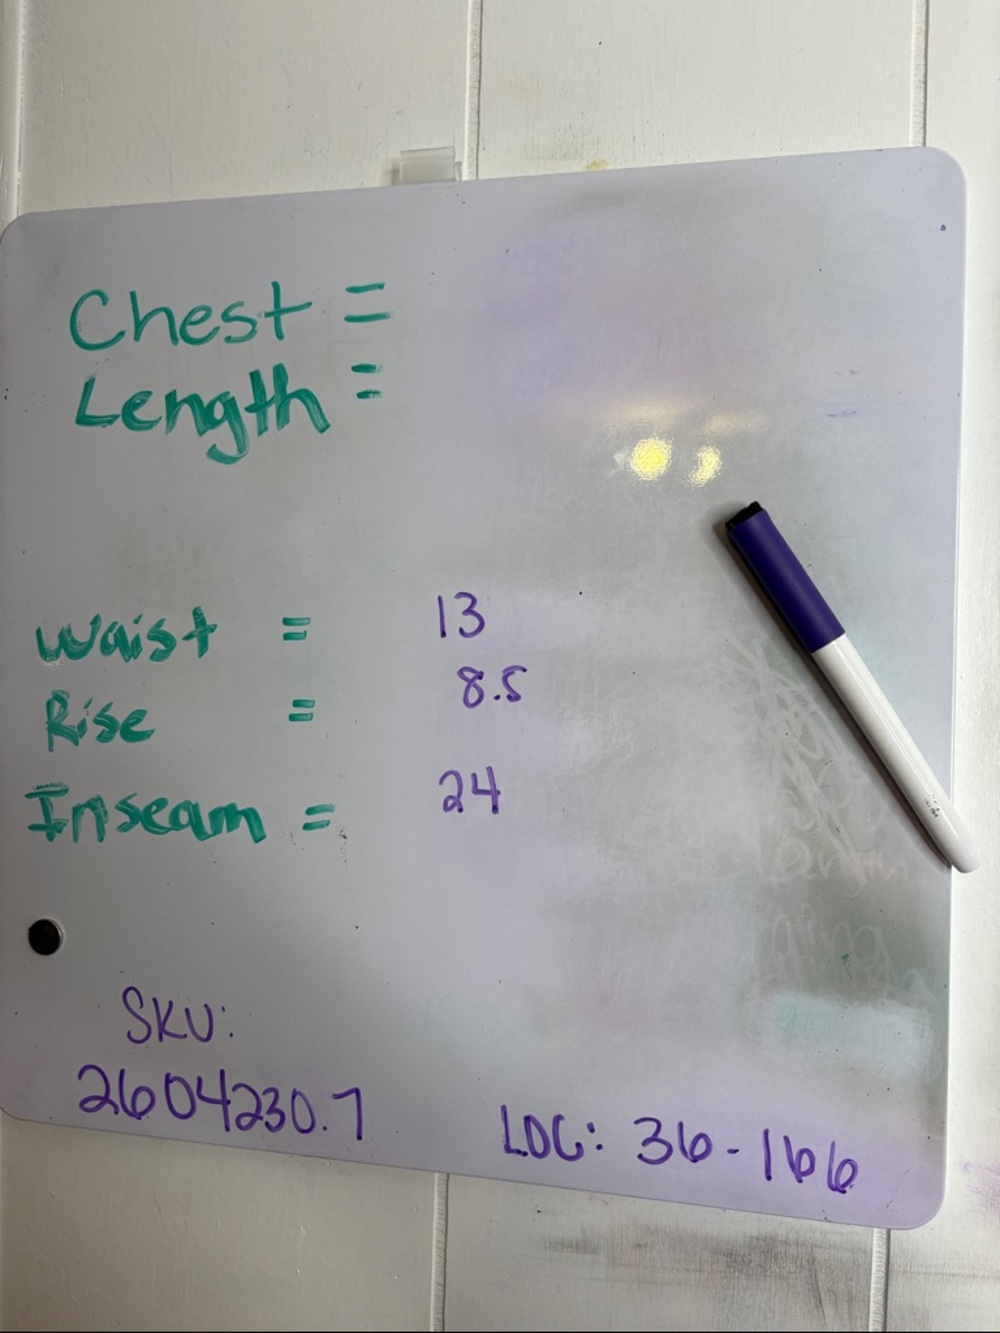 Chest =
Length =
Waist = 13
Rise = 8.5
Inseam = 24
SKU:
2604230.7
LOC: 36-166